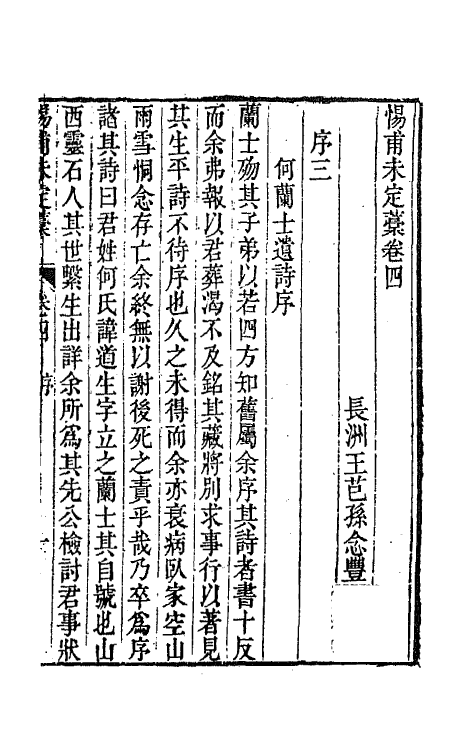 惕甫未定藁卷四
長洲王芑孫念豐
序三
何蘭士遺詩序
蘭士殤其子弟以若四方知舊屬余序其詩者書十反
而余弗報以君葬渴不及銘其藏將別求事行以著見
其生平詩不待序也久之未得而余亦衰病臥家空山
雨雪恫念存亡余終無以謝後死之責乎哉乃卒為序
諸其詩曰君姓何氏諱道生字立之蘭士其自號也山
西靈石人其世繫生出詳余所為其先公檢討君事狀
惕甫未定藁 卷四 序 一